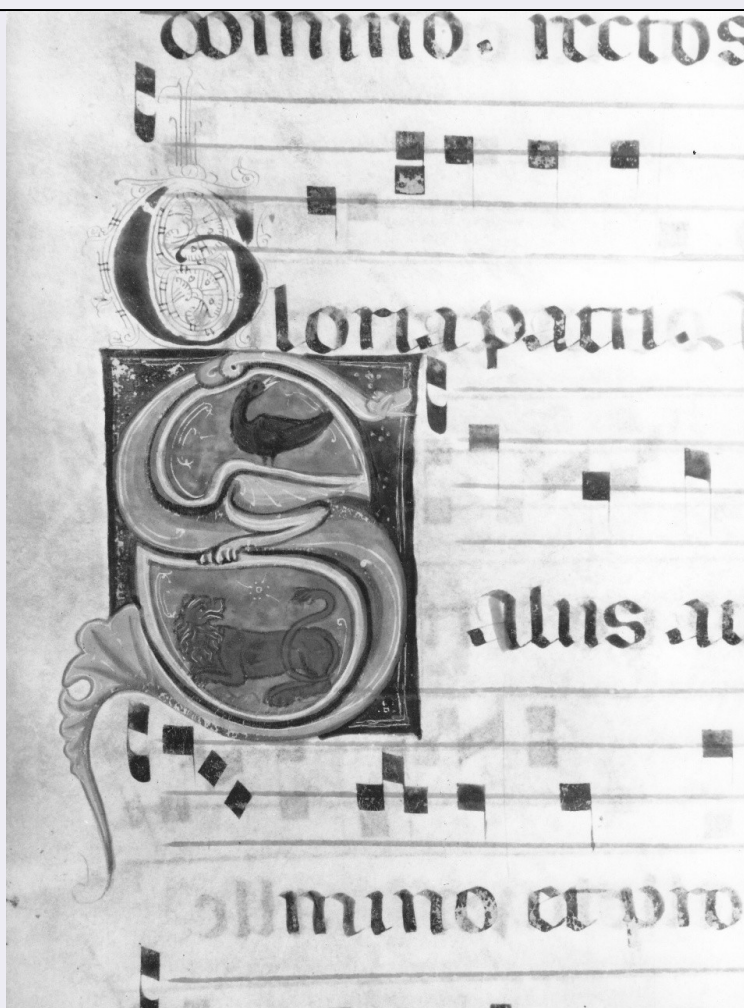 domino. rectos
Gloria patri.
Salus au
mino et pro